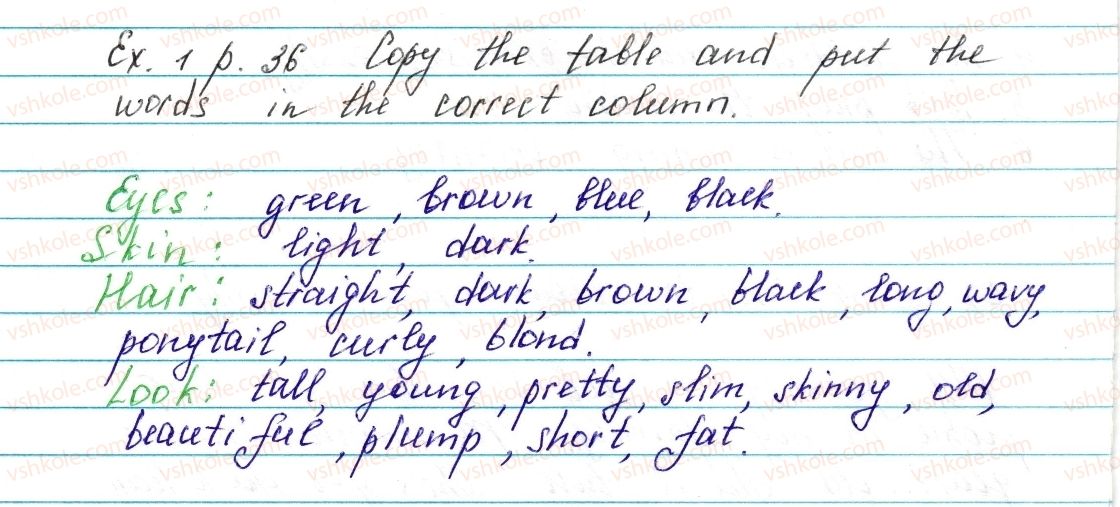 Ex. 1 p. 36 Copy the table and put the
words in the correct column.
Eyes: green, brown, blue, black.
Skin: light, dark.
Hair: straight, dark, brown, black, long, wavy,
ponytail, curly, blond.
Look: tall, young, pretty, slim, skinny, old,
beautiful, plump, short, fat.